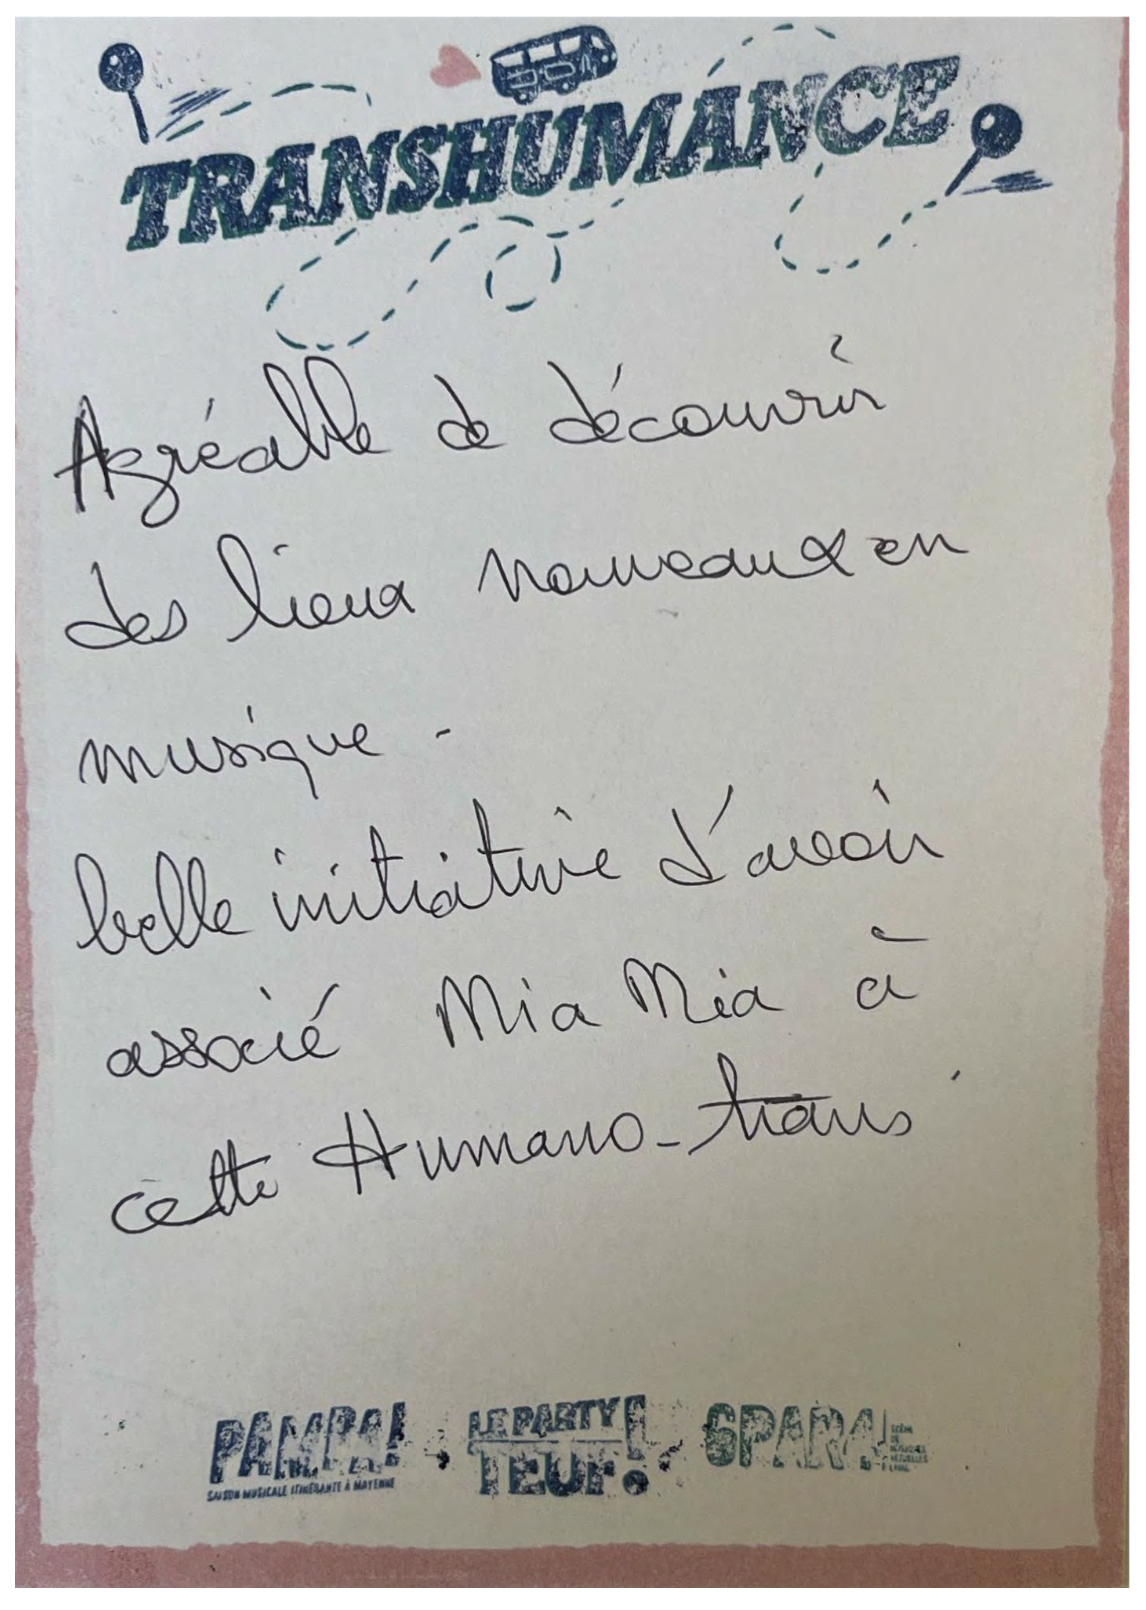 TRANSHUMANCE
Agréable de découvrir
des lieux nouveaux en
musique.
belle initiative d'avoir
associé Mia Mia à
cette Humano-trans
PAMPA!
SAISON MUSICALE ITINÉRANTE À MAYENNE
LE PARTY
TEUF!
6PAR4
SCÈNE
DE
MUSIQUES
ACTUELLES
LAVAL